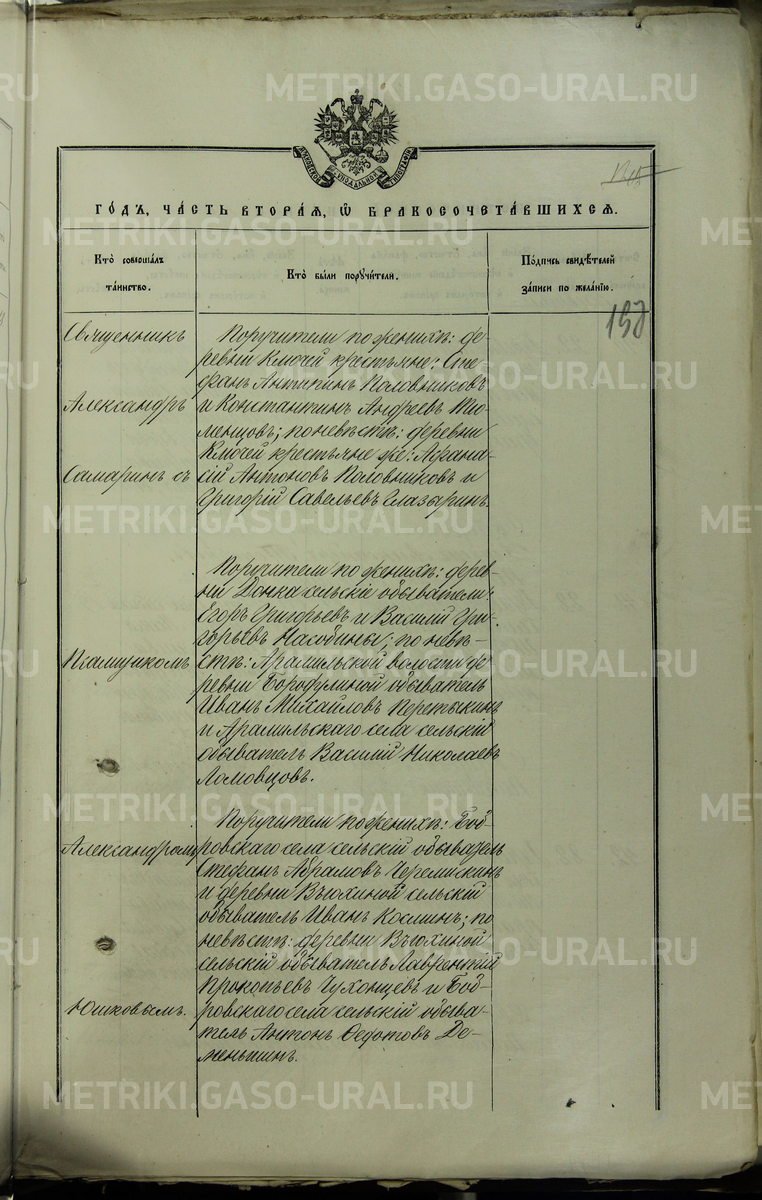 METRIKI.GASO-URAL.RU
МОСКОВСКОЙ СѴНОДАЛЬНОЙ ТИПОГРАФІИ
ГОДЪ, ЧАСТЬ ВТОРАЯ, Ѿ БРАКОСОЧЕТАВШИХСЯ.
Кто совершалъ
таинство.
Кто были поручители.
Подпись свидѣтелей
записи по желанію.
Священникъ
Александръ
Самаринъ съ
Псаломщикомъ
Александромъ
Юшковымъ.
Поручители по женихѣ: де-
ревни Ключей крестьяне: Сте-
фанъ Антипинъ Половниковъ
и Константинъ Андреевъ Тю-
менцовъ; по невѣстѣ: деревни
Ключей крестьяне же: Афана-
сій Антоновъ Половниковъ и
Григорій Савельевъ Глазыринъ.
Поручители по женихѣ: дерев-
ни Донка сельскіе обыватели:
Егоръ Григорьевъ и Василій Гри-
горьевъ Насобины; по невѣ-
стѣ: Арамильской волости де-
ревни Бородулиной обыватель
Иванъ Михайловъ Перетыкинъ
и Арамильскаго села сельскій
обыватель Василій Николаевъ
Ломовцовъ.
Поручители по женихѣ: Боб-
ровскаго села сельскій обыватель
Стефанъ Абрамовъ Черемискинъ
и деревни Вьюхиной сельскій
обыватель Иванъ Косминъ; по
невѣстѣ: деревни Вьюхиной
сельскій обыватель Лаврентій
Прокопьевъ Чухонцевъ и Боб-
ровскаго села сельскій обыва-
тель Антонъ Федотовъ Де-
меньшинъ.